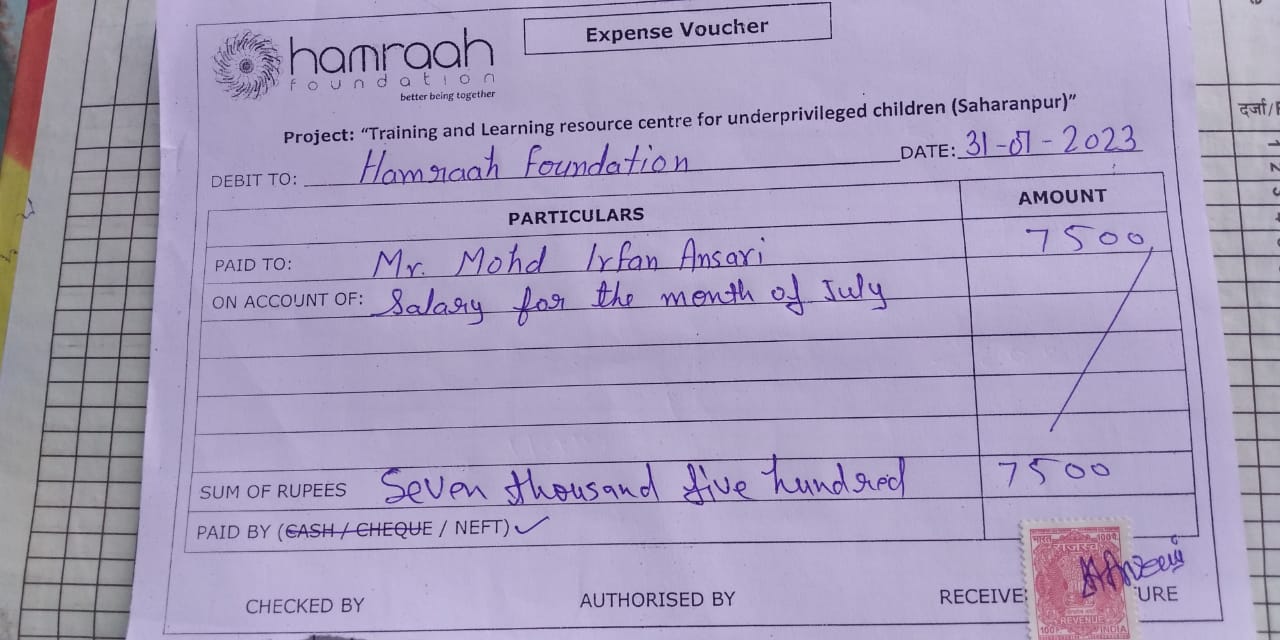 Expense Voucher
hamraah
foundation
better being together
Project: “Training and Learning resource centre for underprivileged children (Saharanpur)”
DEBIT TO: Hamraah Foundation DATE: 31-07-2023
PARTICULARS AMOUNT
PAID TO: Mr. Mohd Irfan Ansari 7500
ON ACCOUNT OF: Salary for the month of July
SUM OF RUPEES Seven thousand five hundred 7500
PAID BY (CASH / CHEQUE / NEFT) ✓
CHECKED BY AUTHORISED BY RECEIVE URE
भारत
REVENUE
INDIA
दर्जा/